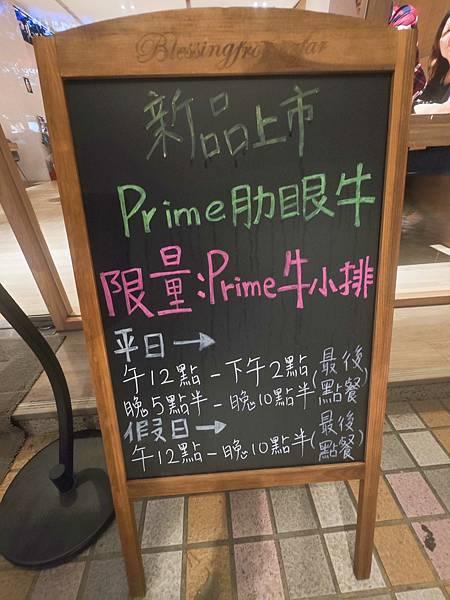 Blessing from afar
新品上市
Prime肋眼牛
限量:Prime牛小排
平日→
午12點-下午2點(最後
晚5點半-晚10點半 點餐)
假日→
午12點-晚10點半(最後
點餐)